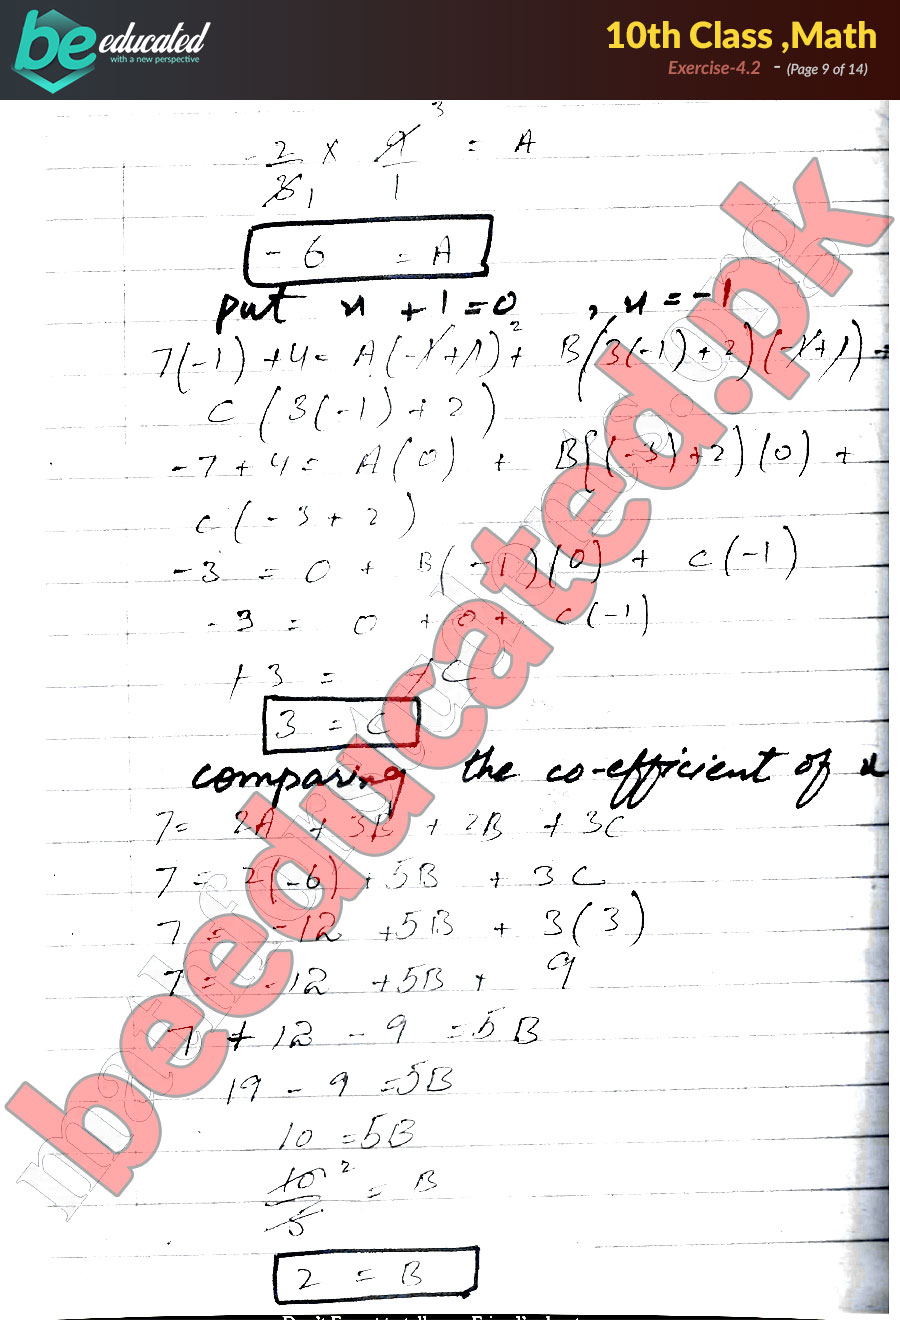 be educated
with a new perspective
10th Class ,Math
Exercise-4.2 - (Page 9 of 14)
-2/3 1 × 9 3/1 = A
-6 = A
put x + 1 = 0 , x = -1
7(-1) + 4 = A(-1+1)² + B(3(-1)+2)(-1+1) +
C(3(-1)+2)
-7 + 4 = A(0) + B((-3)+2)(0) +
C(-3+2)
-3 = 0 + B(-1)(0) + C(-1)
-3 = 0 + 0 + C(-1)
+3 = +C
3 = C
comparing the co-efficient of x
7 = 2A + 3B + 2B + 3C
7 = 2(-6) + 5B + 3C
7 = -12 + 5B + 3(3)
7 = -12 + 5B + 9
7 + 12 - 9 = 5B
19 - 9 = 5B
10 = 5B
10 2/5 = B
2 = B
beeducated.pk